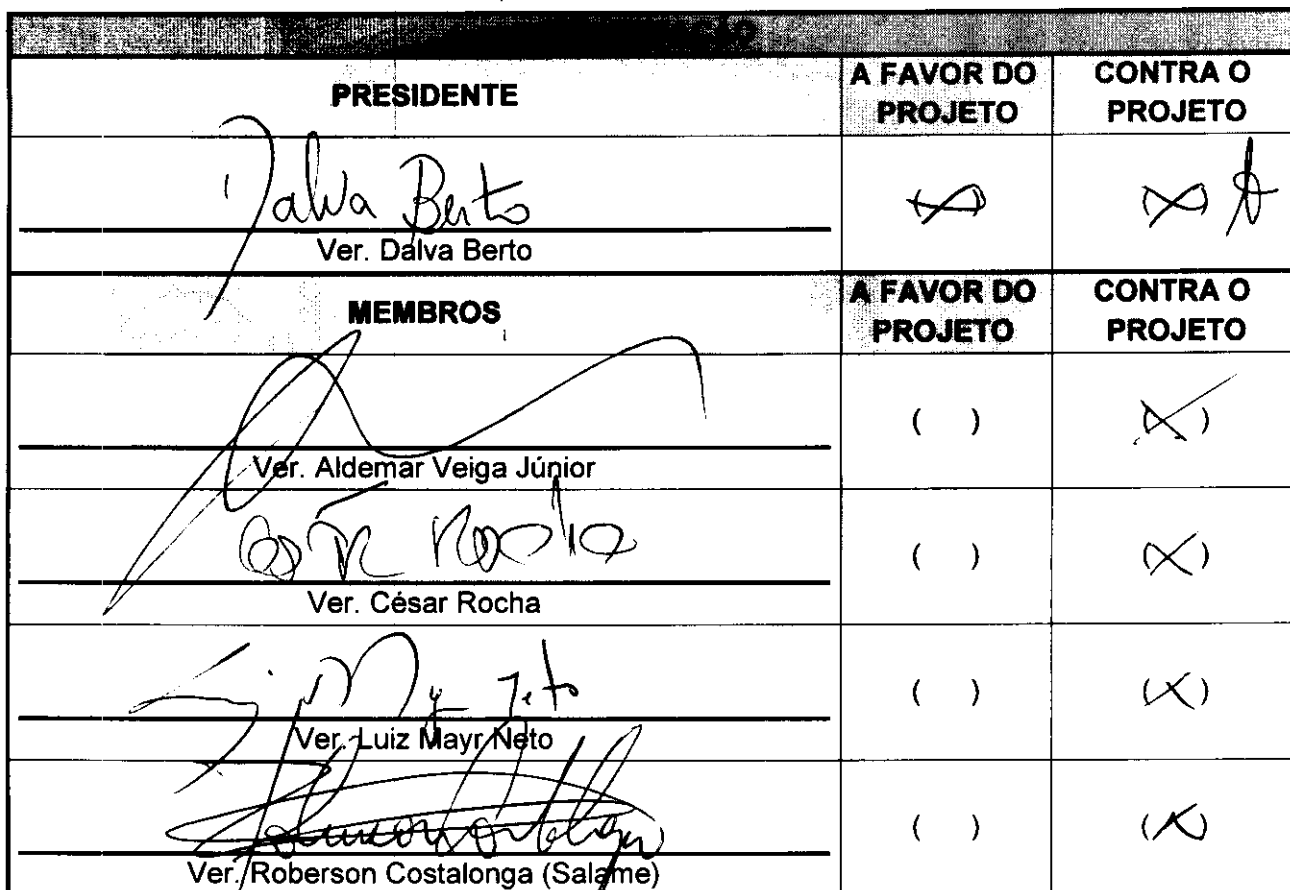 PRESIDENTE A FAVOR DO PROJETO CONTRA O PROJETO
Dalva Berto (X) (X)
Ver. Dalva Berto
MEMBROS A FAVOR DO PROJETO CONTRA O PROJETO
( ) (X)
Ver. Aldemar Veiga Júnior
César Rocha ( ) (X)
Ver. César Rocha
( ) (X)
Ver. Luiz Mayr Neto
( ) (X)
Ver. Roberson Costalonga (Salame)